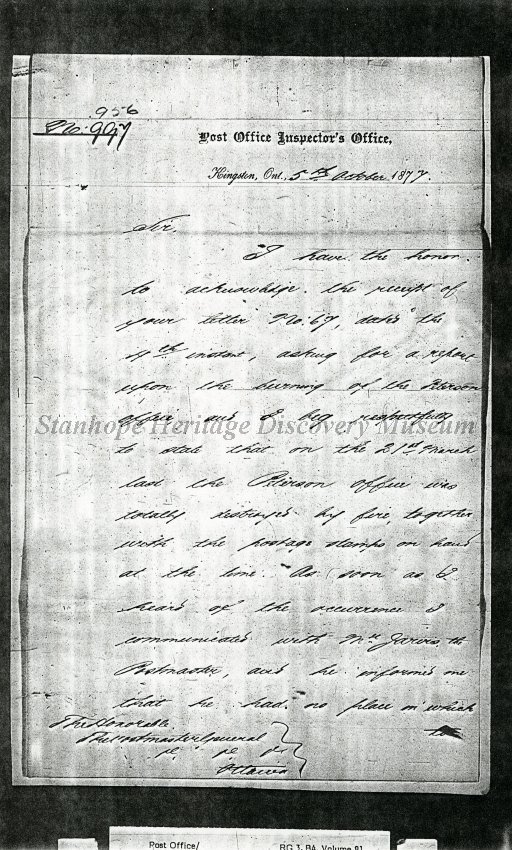 956
No. 997
Post Office Inspector's Office,
Kingston, Ont., 5th October 1877.
Sir,
I have the honor
to acknowledge the receipt of
your letter No. 67, dated the
4th instant, asking for a report
upon the burning of the Peterson
office and I beg respectfully
Stanhope Heritage Discovery Museum
to state that on the 21st March
last the Peterson office was
totally destroyed by fire, together
with the postage stamps on hand
at the time. As soon as I
heard of the occurrence I
communicated with Mr Jarvis, the
Postmaster, and he informed me
that he had no place in which
to
The Honorable
The Postmaster General
Ottawa
Post Office/ RG 3, BA, Volume 81